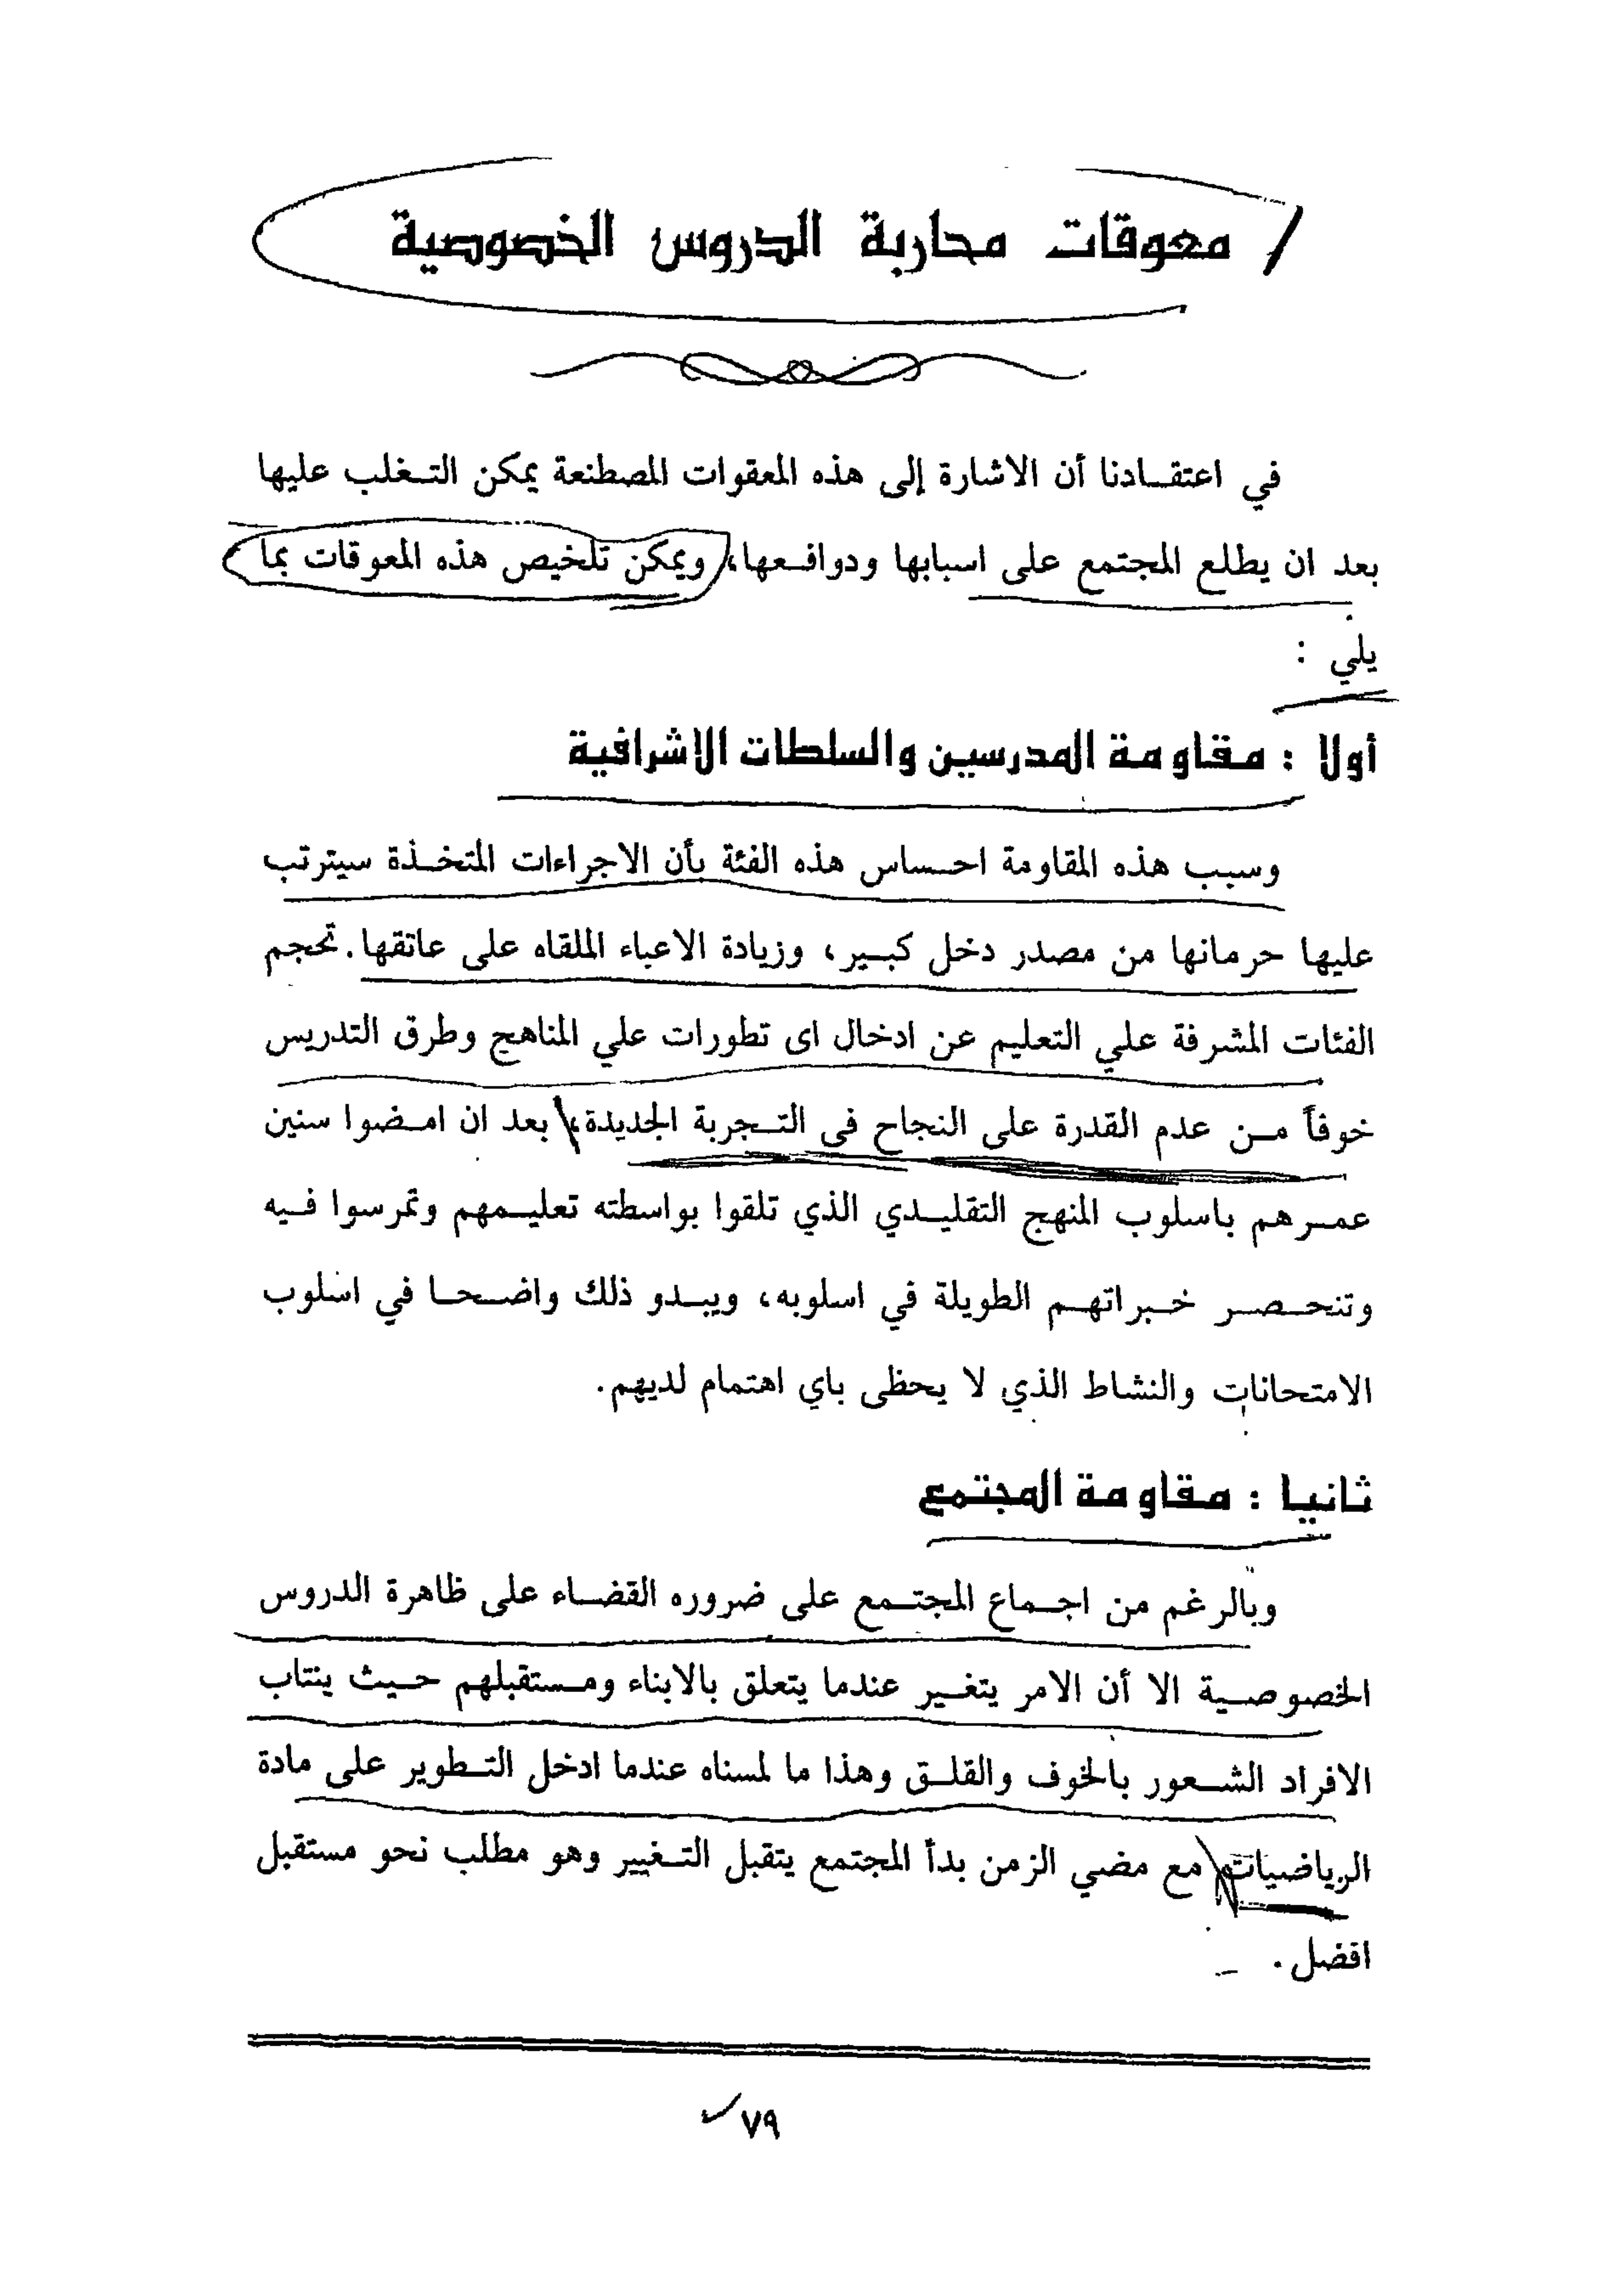 معوقات محاربة الدروس الخصوصية
في اعتقادنا أن الاشارة إلى هذه المعقوات المصطنعة يمكن التغلب عليها
بعد ان يطلع المجتمع على اسبابها ودوافعها، ويمكن تلخيص هذه المعوقات بما
يلي :
أولا : مقاومة المدرسين والسلطات الاشرافية
وسبب هذه المقاومة احساس هذه الفئة بأن الاجراءات المتخذة سيترتب
عليها حرمانها من مصدر دخل كبير، وزيادة الاعباء الملقاه على عاتقها. تحجم
الفئات المشرفة علي التعليم عن ادخال اى تطورات علي المناهج وطرق التدريس
خوفاً من عدم القدرة على النجاح فى التجربة الجديدة، بعد ان امضوا سنين
عمرهم باسلوب المنهج التقليدي الذي تلقوا بواسطته تعليمهم وتمرسوا فيه
وتنحصر خبراتهم الطويلة في اسلوبه، ويبدو ذلك واضحا في اسلوب
الامتحانات والنشاط الذي لا يحظى باي اهتمام لديهم.
ثانيا : مقاومة المجتمع
وبالرغم من اجماع المجتمع على ضروره القضاء على ظاهرة الدروس
الخصوصية الا أن الامر يتغير عندما يتعلق بالابناء ومستقبلهم حيث ينتاب
الافراد الشعور بالخوف والقلق وهذا ما لمسناه عندما ادخل التطوير على مادة
الرياضيات مع مضي الزمن بدأ المجتمع يتقبل التغيير وهو مطلب نحو مستقبل
افضل.
٧٩